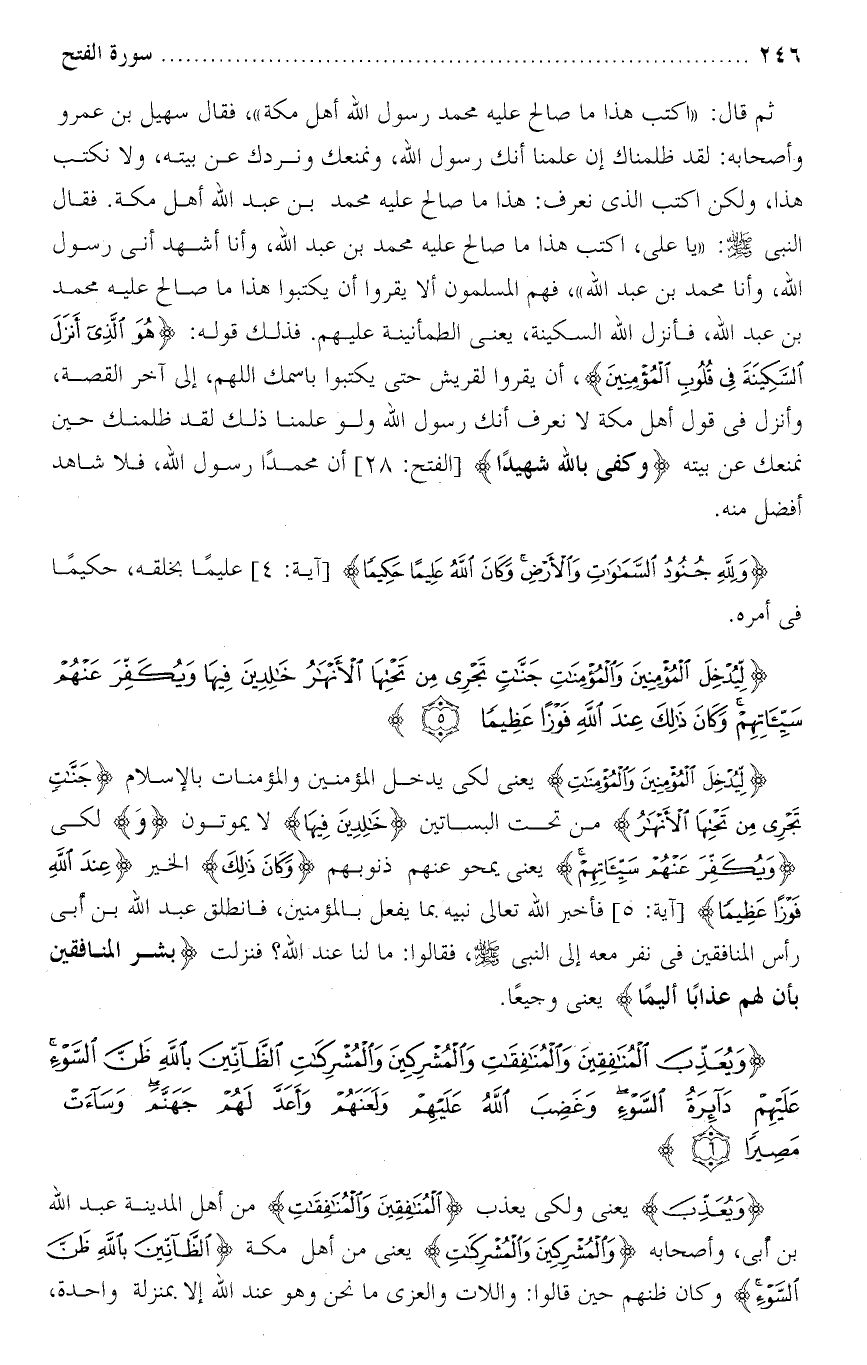 ٢٤٦ ........................................................................ سورة الفتح
ثم قال: «اكتب هذا ما صالح عليه محمد رسول الله أهل مكة»، فقال سهيل بن عمرو
وأصحابه: لقد ظلمناك إن علمنا أنك رسول الله، ونمنعك ونردك عن بيته، ولا نكتب
هذا، ولكن اكتب الذى نعرف: هذا ما صالح عليه محمد بن عبد الله أهل مكة. فقال
النبى ﷺ: «يا على، اكتب هذا ما صالح عليه محمد بن عبد الله، وأنا أشهد أنى رسول
الله، وأنا محمد بن عبد الله»، فهم المسلمون ألا يقروا أن يكتبوا هذا ما صالح عليه محمد
بن عبد الله، فأنزل الله السكينة، يعنى الطمأنينة عليهم. فذلك قوله: ﴿هُوَ ٱلَّذِىٓ أَنزَلَ
ٱلسَّكِينَةَ فِى قُلُوبِ ٱلْمُؤْمِنِينَ﴾، أن يقروا لقريش حتى يكتبوا باسمك اللهم، إلى آخر القصة،
وأنزل فى قول أهل مكة لا نعرف أنك رسول الله ولو علمنا ذلك لقد ظلمنك حين
نمنعك عن بيته ﴿وكفى بالله شهيدًا﴾ [الفتح: ٢٨] أن محمدًا رسول الله، فلا شاهد
أفضل منه.
﴿وَلِلَّهِ جُنُودُ ٱلسَّمَٰوَٰتِ وَٱلْأَرْضِ ۚ وَكَانَ ٱللَّهُ عَلِيمًا حَكِيمًا﴾ [آية: ٤] عليمًا بخلقه، حكيمًا
فى أمره.
﴿لِّيُدْخِلَ ٱلْمُؤْمِنِينَ وَٱلْمُؤْمِنَٰتِ جَنَّٰتٍ تَجْرِى مِن تَحْتِهَا ٱلْأَنْهَٰرُ خَٰلِدِينَ فِيهَا وَيُكَفِّرَ عَنْهُمْ
سَيِّـَٔاتِهِمْ ۚ وَكَانَ ذَٰلِكَ عِندَ ٱللَّهِ فَوْزًا عَظِيمًا ٥﴾
﴿لِّيُدْخِلَ ٱلْمُؤْمِنِينَ وَٱلْمُؤْمِنَٰتِ﴾ يعنى لكى يدخل المؤمنين والمؤمنات بالإسلام ﴿جَنَّٰتٍ
تَجْرِى مِن تَحْتِهَا ٱلْأَنْهَٰرُ﴾ من تحت البساتين ﴿خَٰلِدِينَ فِيهَا﴾ لا يموتون ﴿وَ﴾ لكى
﴿وَيُكَفِّرَ عَنْهُمْ سَيِّـَٔاتِهِمْ ۚ﴾ يعنى يمحو عنهم ذنوبهم ﴿وَكَانَ ذَٰلِكَ﴾ الخير ﴿عِندَ ٱللَّهِ
فَوْزًا عَظِيمًا﴾ [آية: ٥] فأخبر الله تعالى نبيه بما يفعل بالمؤمنين، فانطلق عبد الله بن أبى
رأس المنافقين فى نفر معه إلى النبى ﷺ، فقالوا: ما لنا عند الله؟ فنزلت ﴿بشر المنافقين
بأن لهم عذابًا أليمًا﴾ يعنى وجيعًا.
﴿وَيُعَذِّبَ ٱلْمُنَٰفِقِينَ وَٱلْمُنَٰفِقَٰتِ وَٱلْمُشْرِكِينَ وَٱلْمُشْرِكَٰتِ ٱلظَّآنِّينَ بِٱللَّهِ ظَنَّ ٱلسَّوْءِ ۚ
عَلَيْهِمْ دَآئِرَةُ ٱلسَّوْءِ ۖ وَغَضِبَ ٱللَّهُ عَلَيْهِمْ وَلَعَنَهُمْ وَأَعَدَّ لَهُمْ جَهَنَّمَ ۖ وَسَآءَتْ
مَصِيرًا ٦﴾
﴿وَيُعَذِّبَ﴾ يعنى ولكى يعذب ﴿ٱلْمُنَٰفِقِينَ وَٱلْمُنَٰفِقَٰتِ﴾ من أهل المدينة عبد الله
بن أبى، وأصحابه ﴿وَٱلْمُشْرِكِينَ وَٱلْمُشْرِكَٰتِ﴾ يعنى من أهل مكة ﴿ٱلظَّآنِّينَ بِٱللَّهِ ظَنَّ
ٱلسَّوْءِ ۚ﴾ وكان ظنهم حين قالوا: واللات والعزى ما نحن وهو عند الله إلا بمنزلة واحدة،